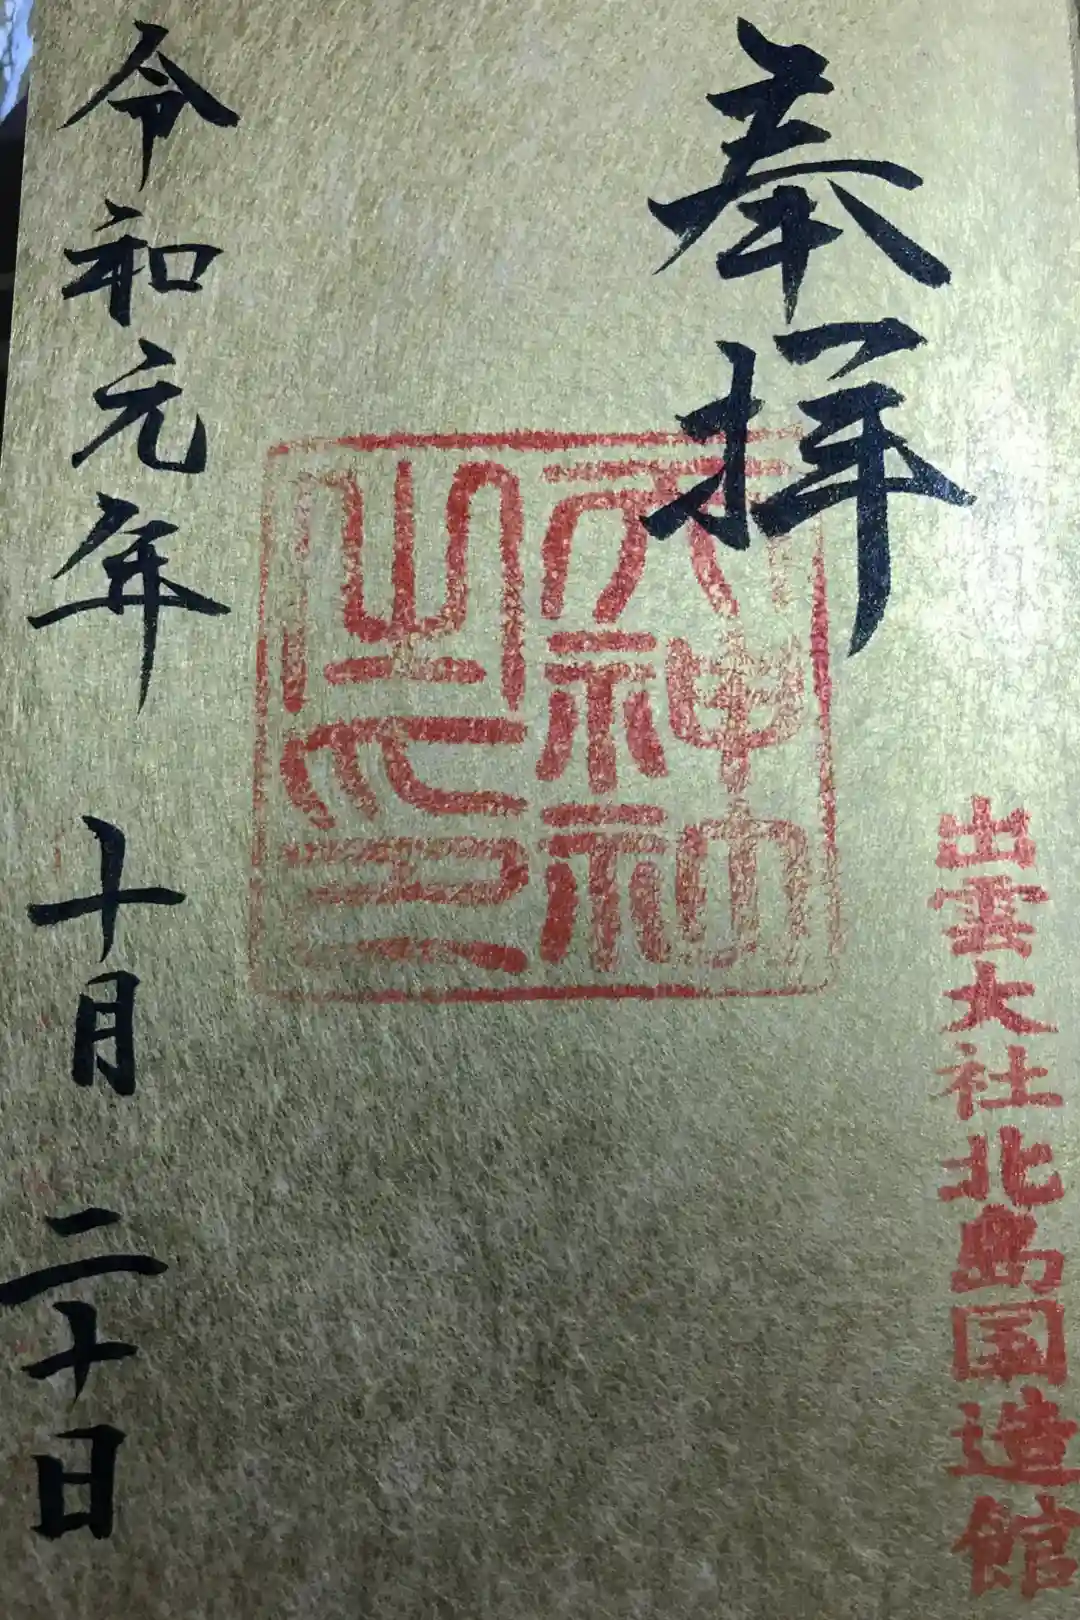 奉拝
出雲大社北島国造館
令和元年 十月 二十日